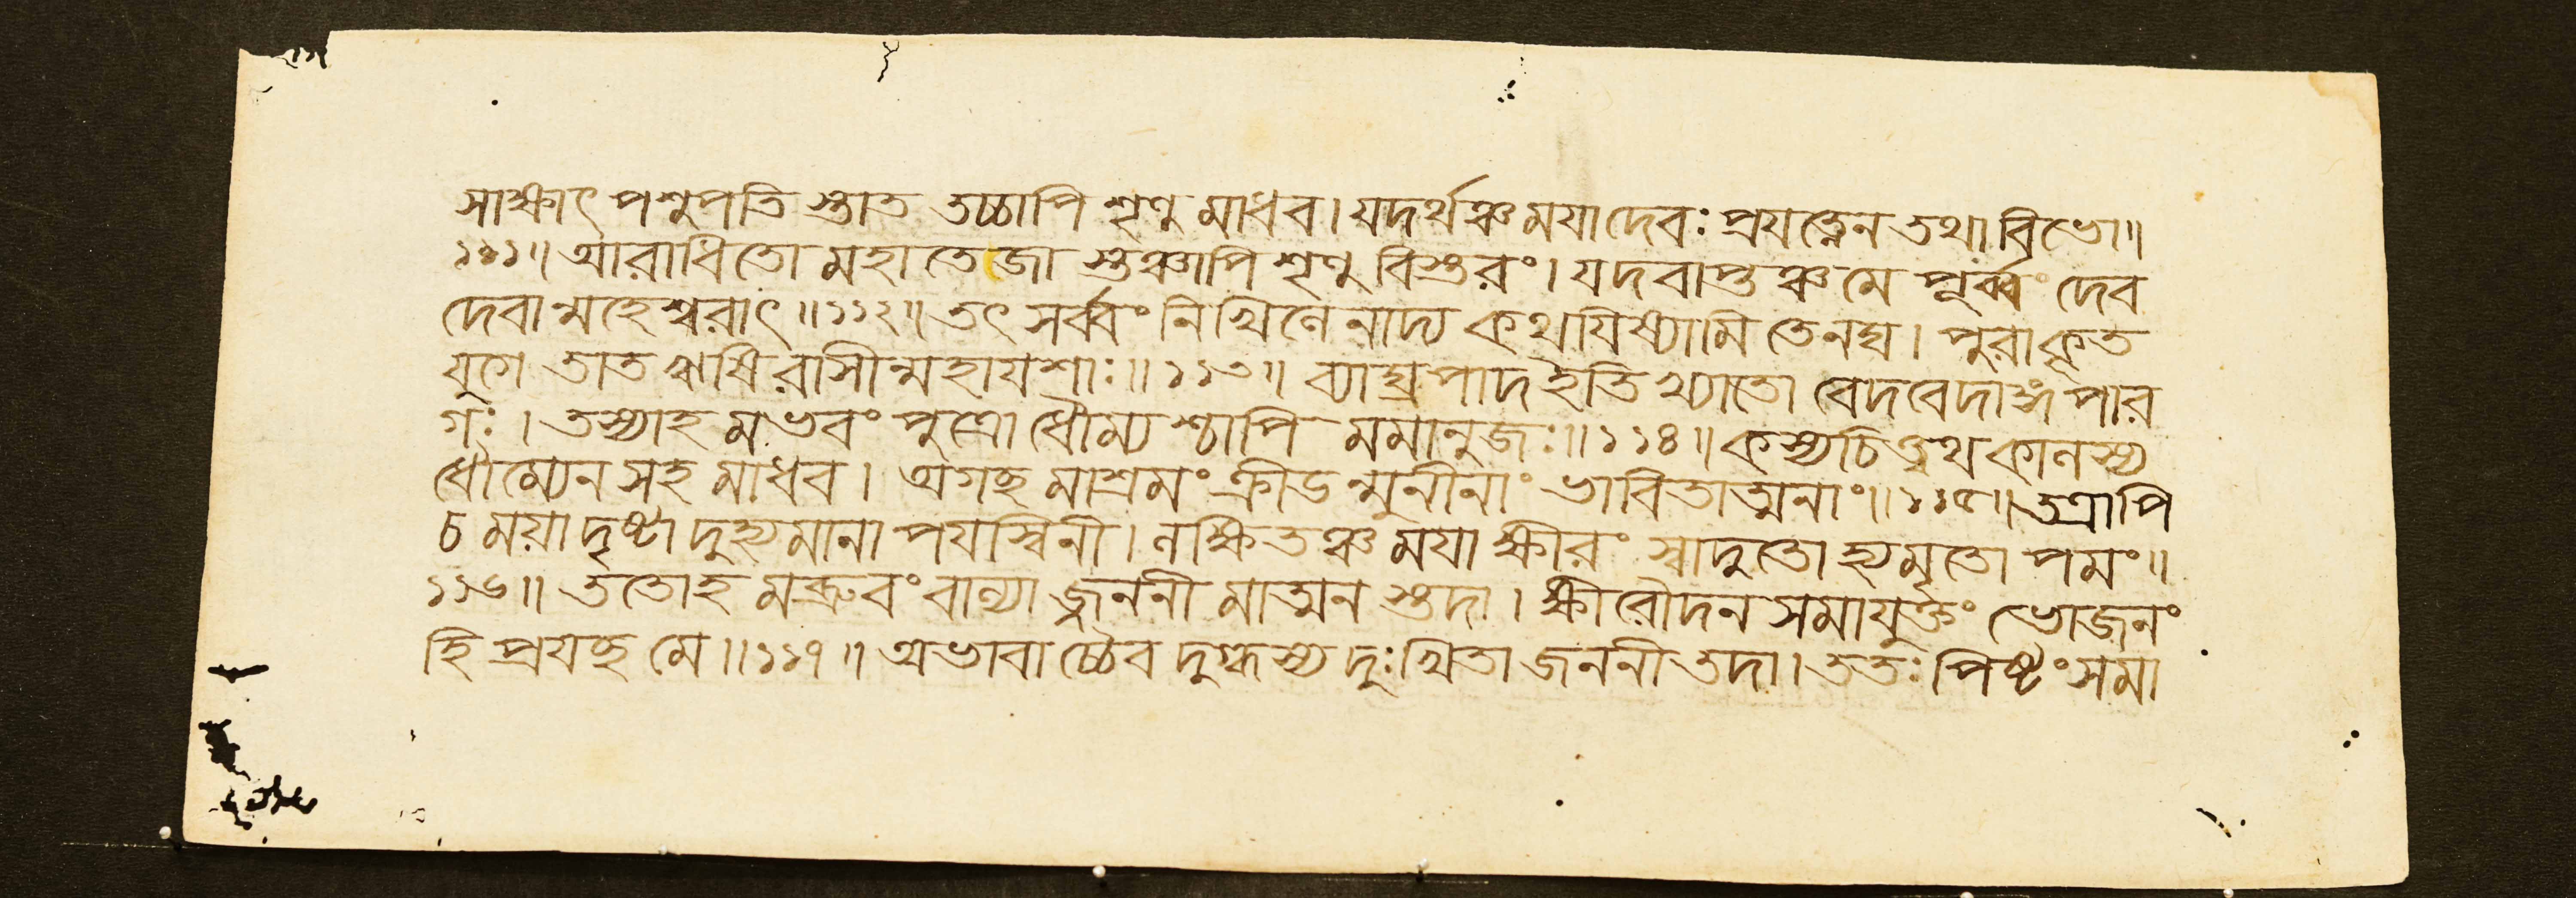 সাক্ষাৎ পশুপতি স্তাত তচ্চাপি শৃণু মাধব। যদর্থঞ্চ ময়া দেবঃ প্রযত্নেন তথা বিভো॥
১১১॥ আরাধিতো মহাতেজা স্তঞ্চাপি শৃণু বিস্তরং। যদবাপ্তঞ্চ মে পূর্ব্বং দেব
দেবান্মহেশ্বরাৎ॥১১২॥ তৎ সর্ব্বং নিখিলেনাদ্য কথযিষ্যামি তেনঘ। পুরাকৃত
যুগে তাত ঋষিরাসীন্মহাযশাঃ॥১১৩॥ ব্যাঘ্রপাদ ইতি খ্যাতো বেদবেদাঙ্গপার
গঃ। তস্যাহমভবং পুত্রো ধৌম্যশ্চাপি মমানুজঃ॥১১৪॥ কস্যচিত্ত্বথ কালস্য
ধৌম্যেন সহ মাধব। অগচ্ছমাশ্রমং ক্রীডন্মুনীনাং ভাবিতাত্মনাং॥১১৫॥ তত্রাপি
চ ময়া দৃষ্টা দুহ্যমানা পযস্বিনী। লক্ষিতঞ্চ ময়া ক্ষীরং স্বাদুতো হ্যমৃতোপমং॥
১১৬॥ ততোহমব্রুবং বাল্যাজ্জননীমাত্মনস্তদা। ক্ষীরৌদনসমাযুক্তং ভোজনং
হি প্রযচ্ছ মে॥১১৭॥ অভাবাচ্চৈব দুগ্ধস্য দুঃখিতা জননী তদা। ততঃ পিষ্টং সমা